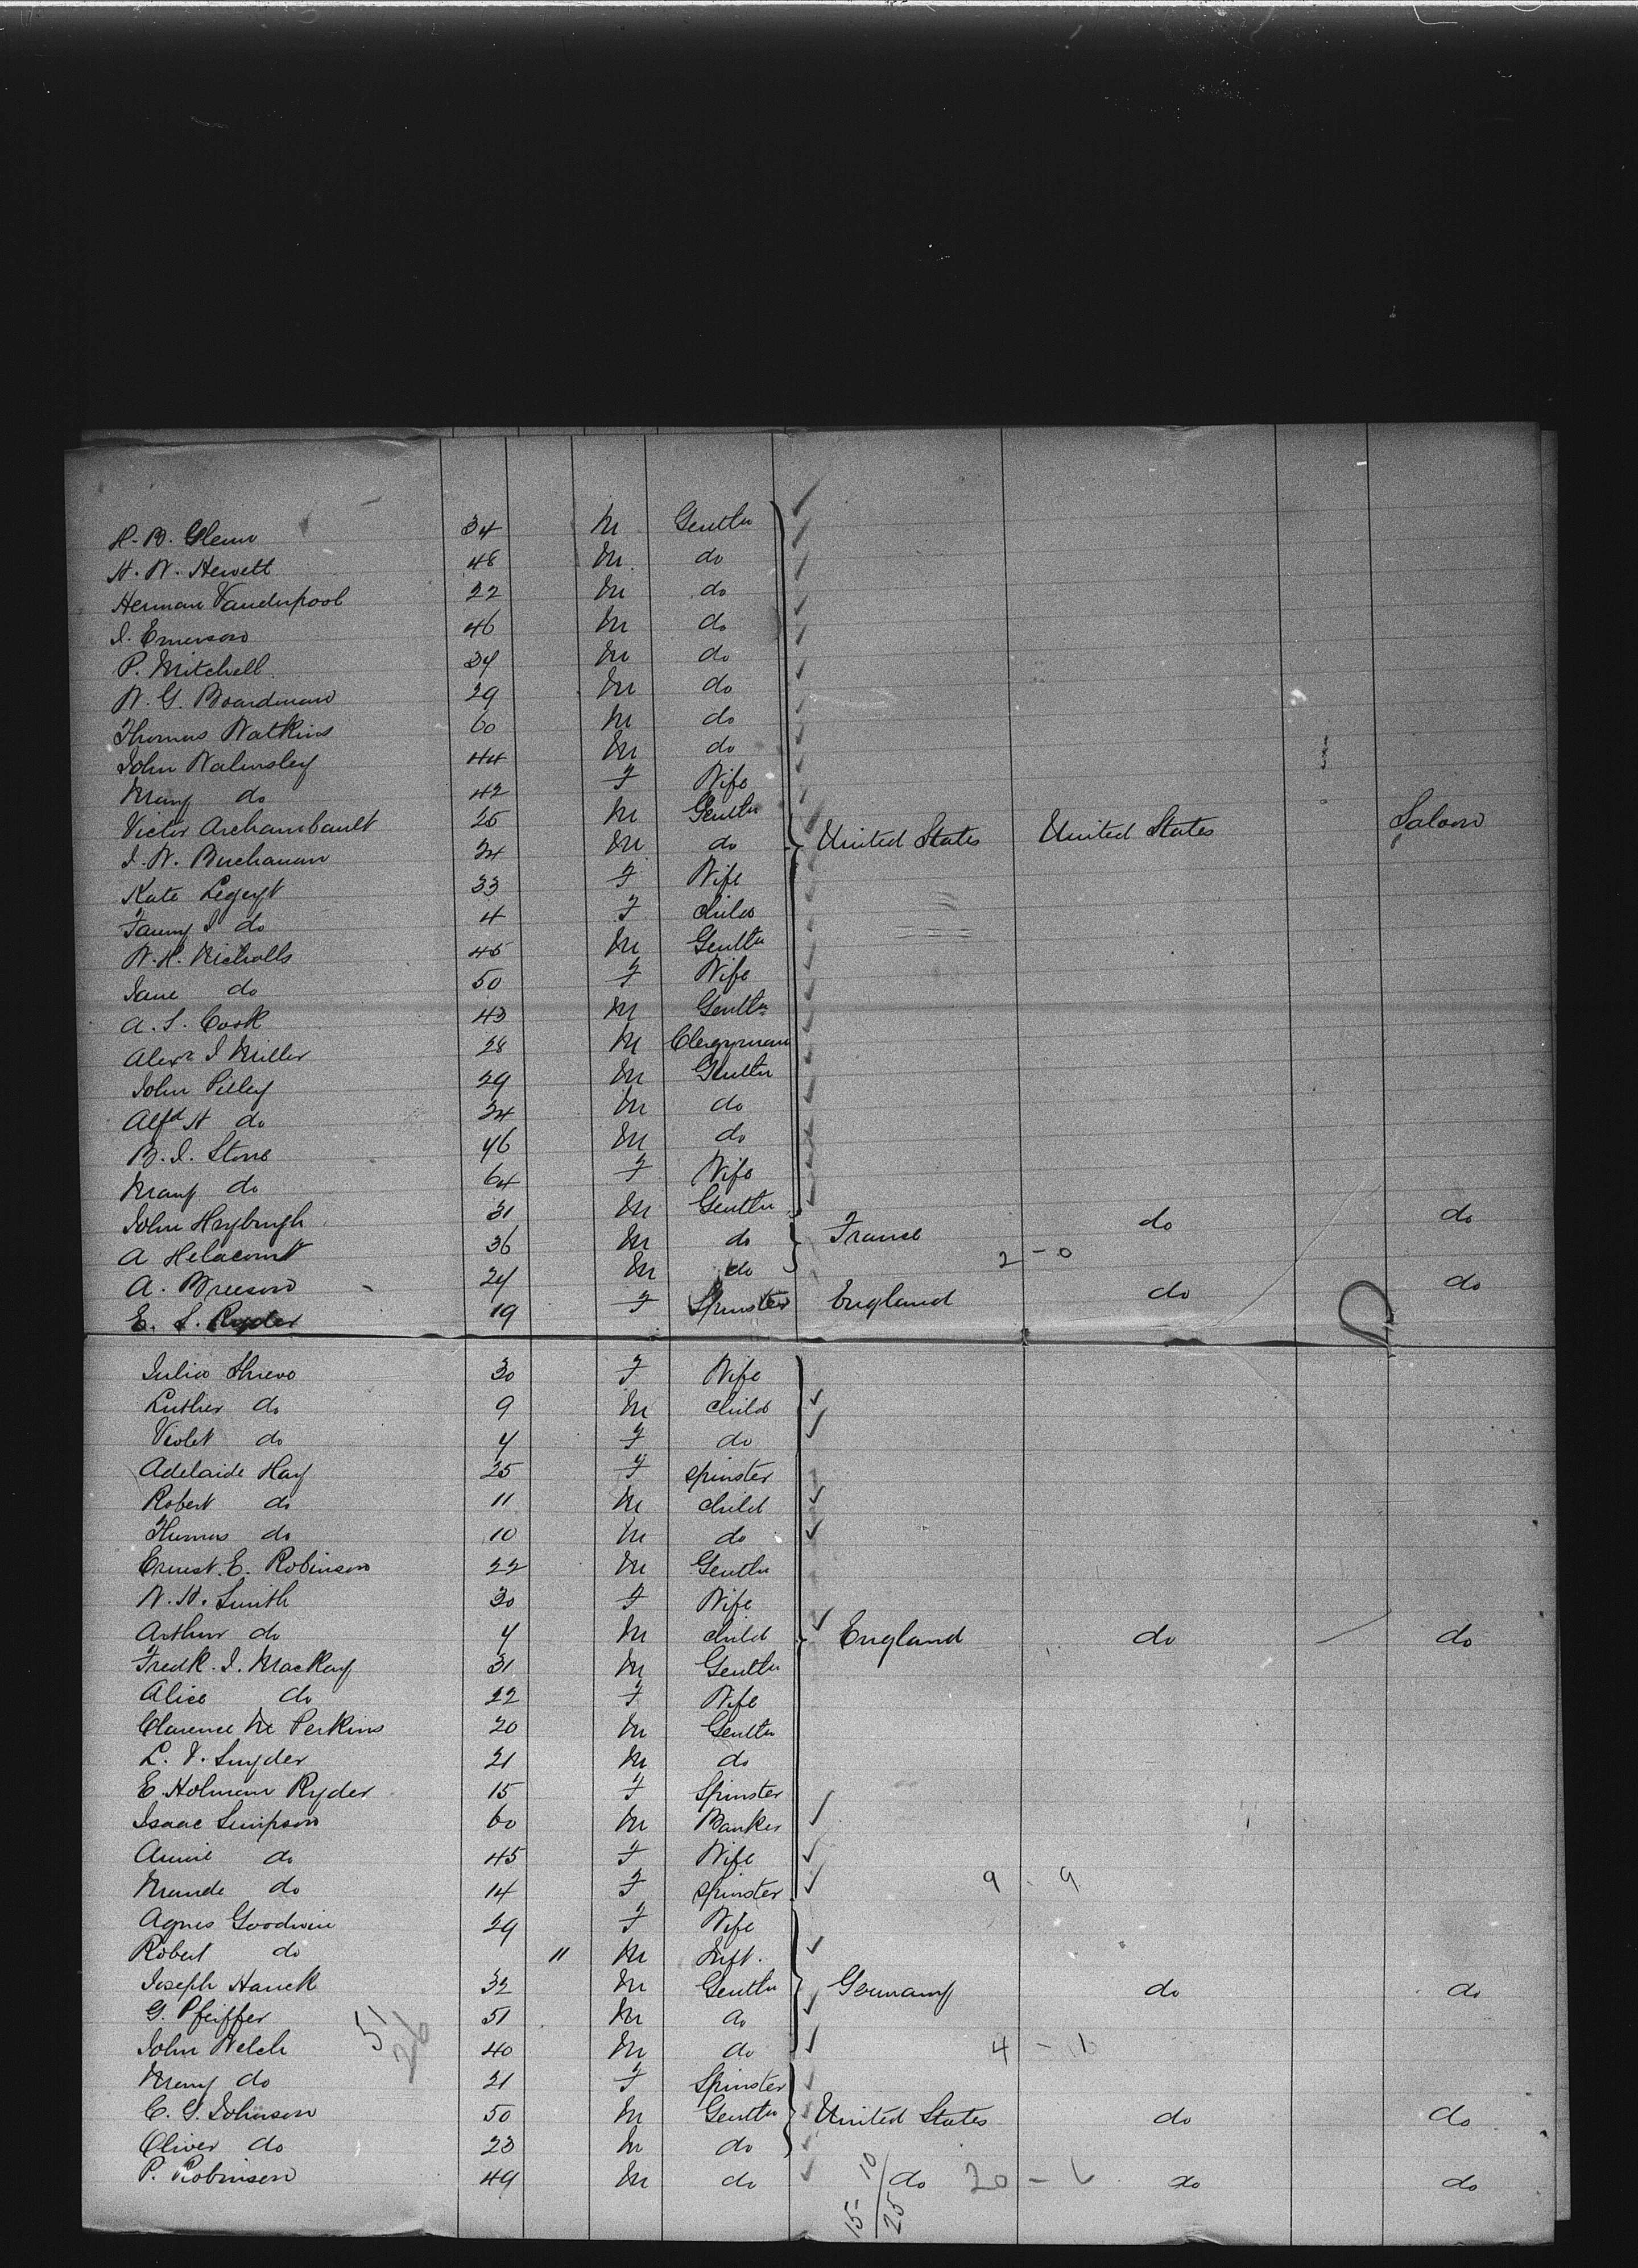 H. B. Glenn 34 M Gentln
H. W. Hewett 48 M do
Herman Vanderpool 22 M do
J. Emerson 46 M do
P. Mitchell 34 M do
W. G. Boardman 29 M do
Thomas Watkins 60 M do
John Walmsley 44 M do
Mary do 42 F Wife
Victor Archambault 25 M Gentln
J. W. Buchanan 34 M do United States United States Saloon
Kate 33 F Wife
Fanny J do 4 F child
W. H. Nicholls 45 M Gentln
Jane do 50 F Wife
A. S. Cook 43 M Gentln
Alexr J Miller 28 M Clergyman
John Pilley 29 M Gentln
Alfd H do 34 M do
B. J. Stone 46 M do
Mary do 64 F Wife
John 31 M Gentln
A 36 M do France do do
A. 24 M do 2 - 0
E. S. Ryder 19 F Spinster England do do
Julia Shreve 30 F Wife
Luther do 9 M child
Violet do 4 F do
Adelaide Hay 25 F spinster
Robert do 11 M child
Thomas do 10 M do
Ernest E. Robinson 22 M Gentln
W. H. Smith 30 F Wife
Arthur do 4 M child England do do
Fredk. J. MacKay 31 M Gentln
Alice do 22 F Wife
Clarence M Perkins 20 M Gentln
L. V. Snyder 21 M do
E Holmane Ryder 15 F Spinster
Isaac Simpson 60 M Banker
Annie do 45 F Wife
Maude do 14 F spinster 9 - 9
Agnes Goodwin 29 F Wife
Robert do 11 M Inft.
Joseph Hanck 32 M Gentln Germany do do
G. Pfeiffer 51 M do
John Welch 40 M do 4 - 1
Mary do 21 F Spinster
C. G. Johnson 50 M Gentln United States do do
Oliver do 23 M do
P. Robinson 49 M do do 20 - 6 do do
51
26
15 10
25